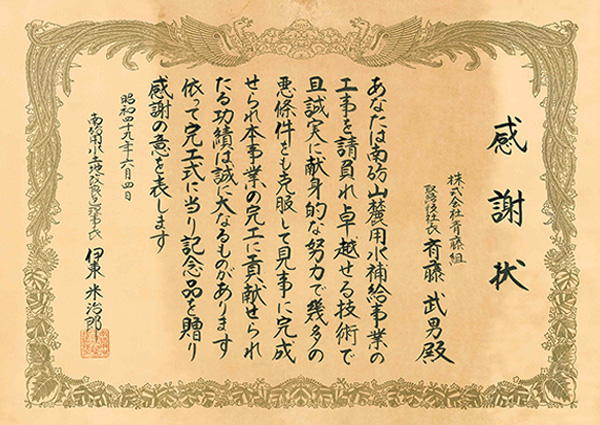 感謝状
株式会社斉藤組
取締役社長 斉藤武男殿
あなたは南砺山麓用水補給事業の
工事を請負れ卓越せる技術で
且誠実に献身的な努力で幾多の
悪條件をも克服して見事に完成
せられ本事業の完工に貢献せられ
たる功績は誠に大なるものがあります
依って完工式に当り記念品を贈り
感謝の意を表します
昭和四十九年六月四日
南砺用水土地改良区理事長 伊東米治郎